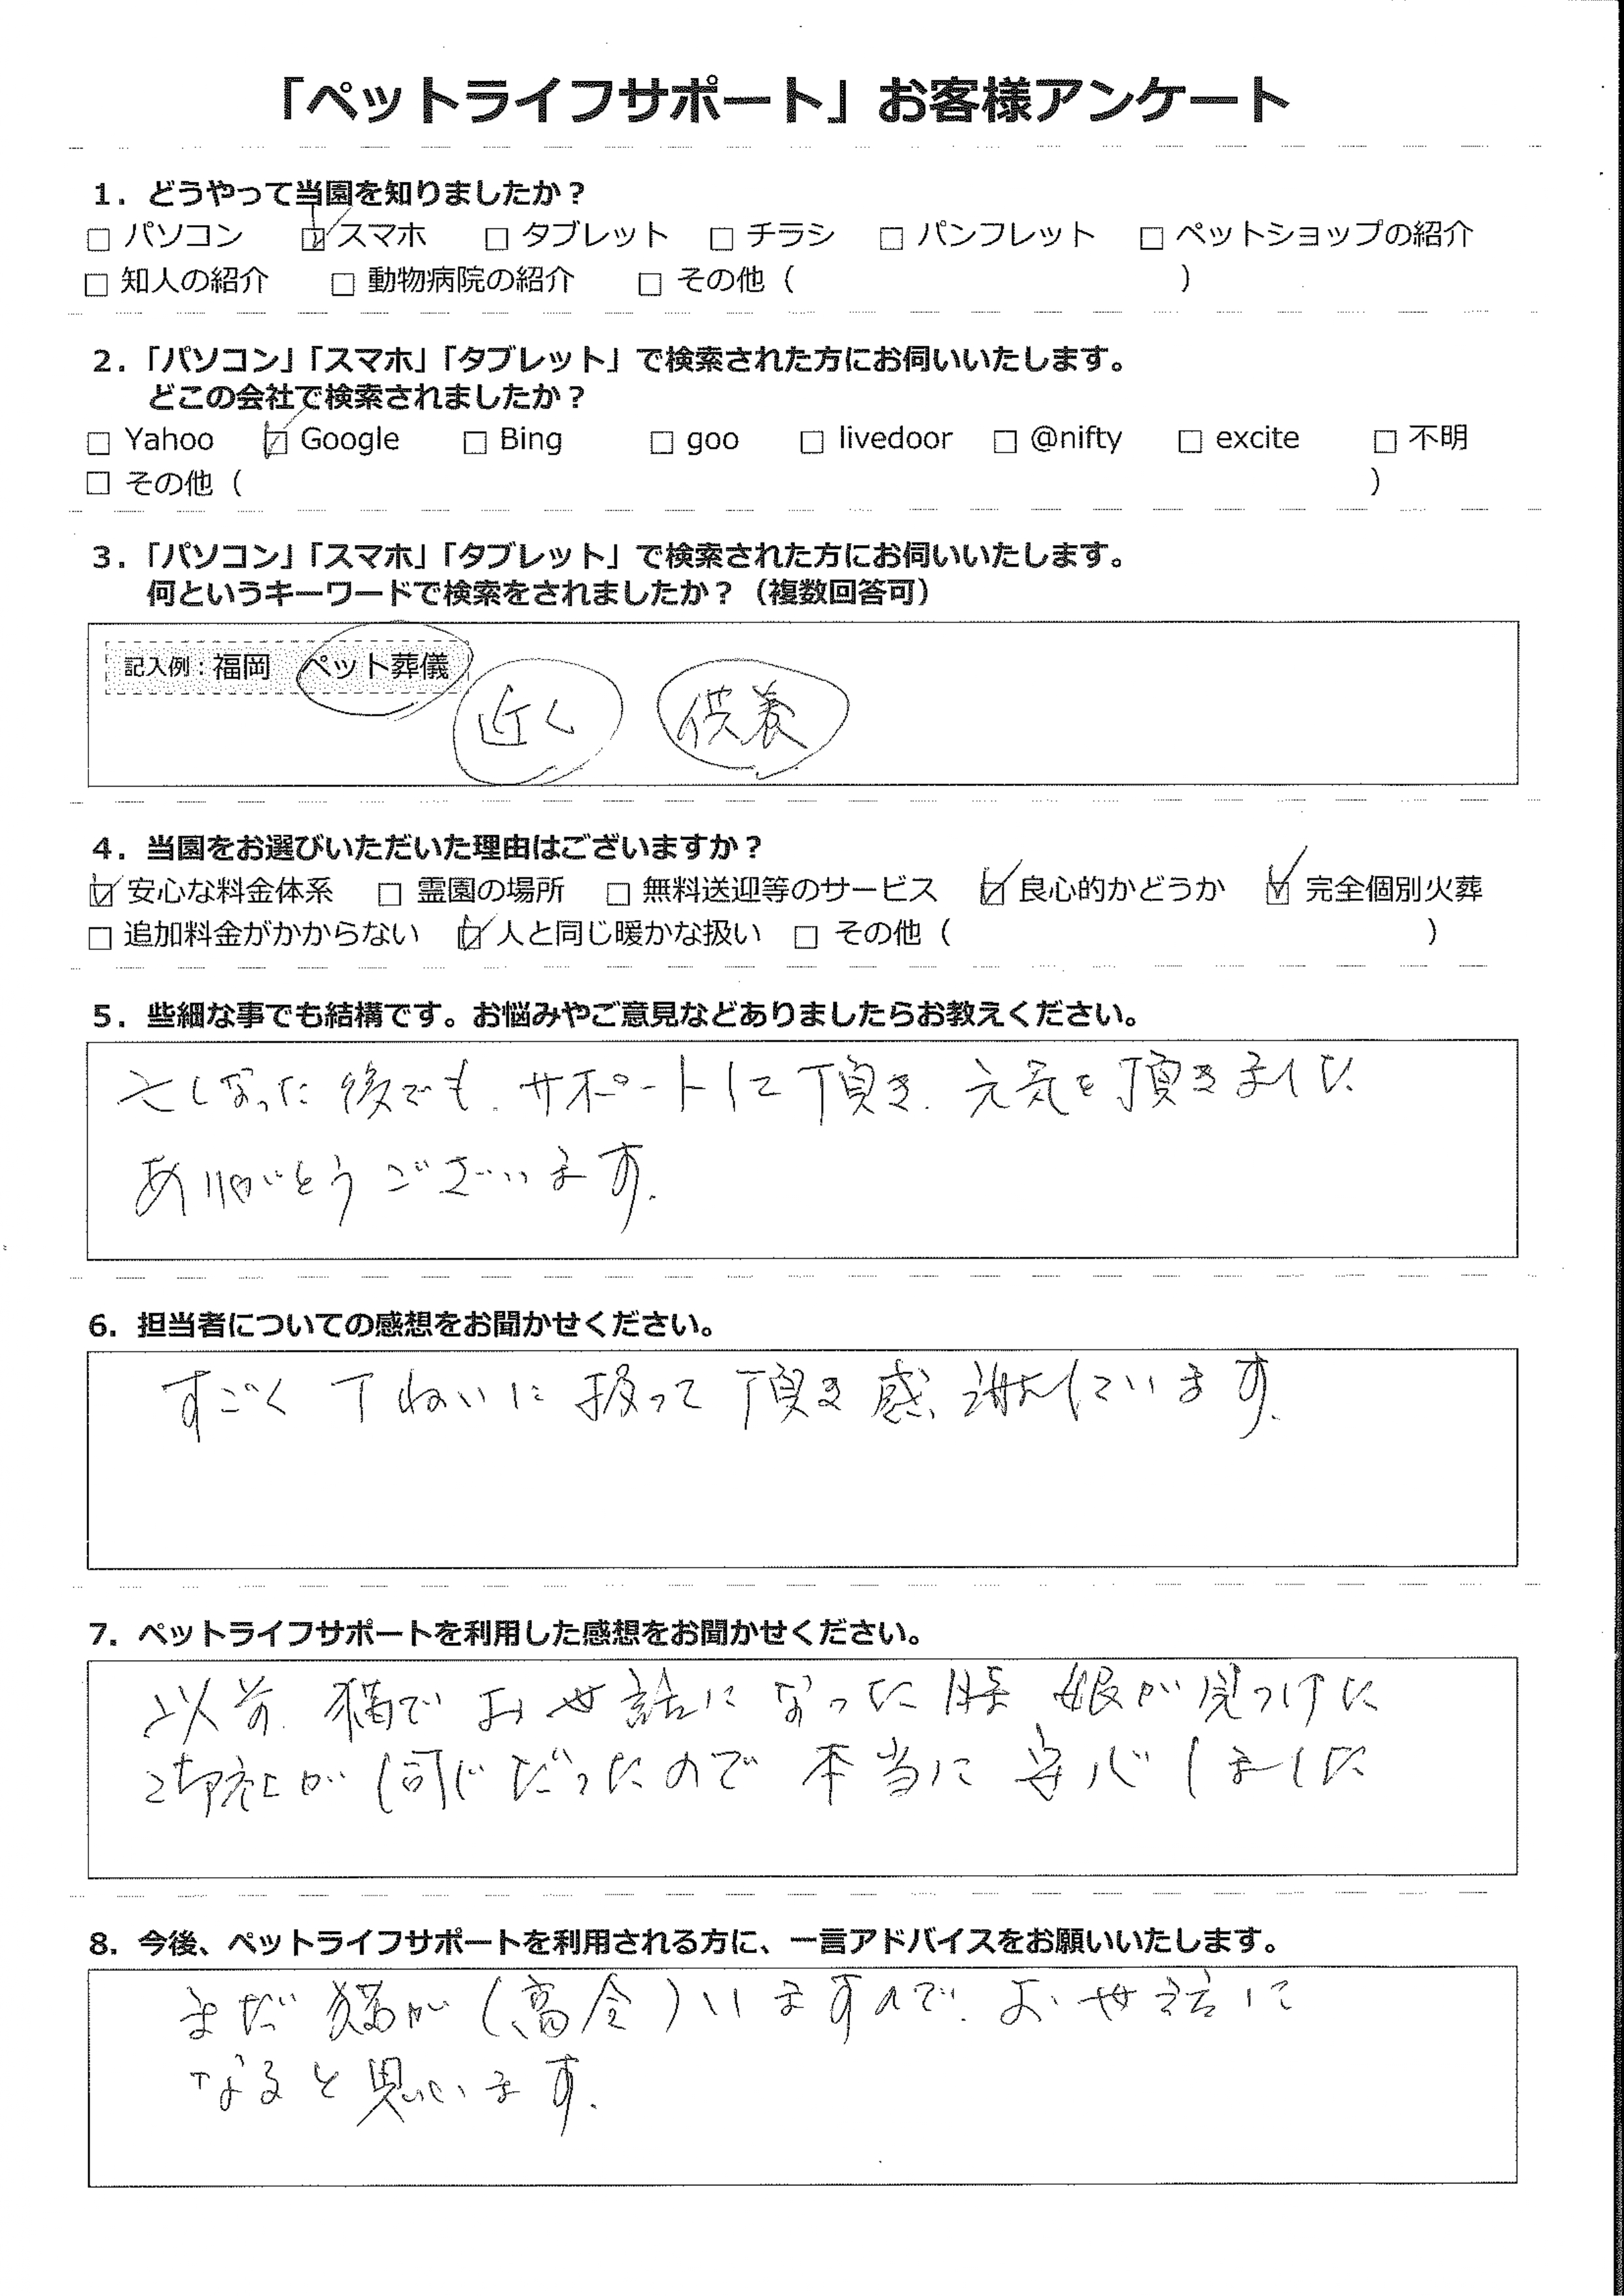 「ペットライフサポート」お客様アンケート
1．どうやって当園を知りましたか？
□ パソコン ☑ スマホ □ タブレット □ チラシ □ パンフレット □ ペットショップの紹介
□ 知人の紹介 □ 動物病院の紹介 □ その他（ ）
2．「パソコン」「スマホ」「タブレット」で検索された方にお伺いいたします。
どこの会社で検索されましたか？
□ Yahoo ☑ Google □ Bing □ goo □ livedoor □ @nifty □ excite □ 不明
□ その他（ ）
3．「パソコン」「スマホ」「タブレット」で検索された方にお伺いいたします。
何というキーワードで検索をされましたか？（複数回答可）
記入例：福岡 ペット葬儀
近く 供養
4．当園をお選びいただいた理由はございますか？
☑ 安心な料金体系 □ 霊園の場所 □ 無料送迎等のサービス ☑ 良心的かどうか ☑ 完全個別火葬
□ 追加料金がかからない ☑ 人と同じ暖かな扱い □ その他（ ）
5．些細な事でも結構です。お悩みやご意見などありましたらお教えください。
亡しなった後でも、サポートして頂き、元気を頂きました
ありがとうございます。
6．担当者についての感想をお聞かせください。
すごく丁ねいに扱って頂き感謝しています。
7．ペットライフサポートを利用した感想をお聞かせください。
以前、猫でお世話になった時 娘が見つけた
御社が同じだったので本当に安心しました
8．今後、ペットライフサポートを利用される方に、一言アドバイスをお願いいたします。
まだ猫が（高令）いますので、お世話に
なると思います。